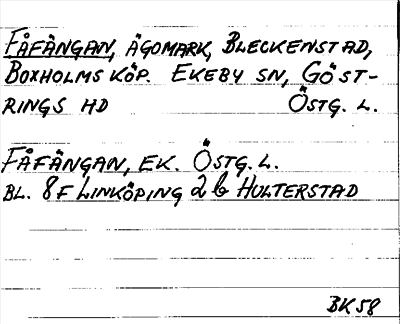 FÅFÄNGAN, ÄGOMARK, BLECKENSTAD,
BOXHOLMS KÖP. EKEBY SN, GÖST-
RINGS HD ÖSTG. L.
FÅFÄNGAN, EK. ÖSTG. L.
BL. 8F LINKÖPING 2 b HULTERSTAD
BK 58